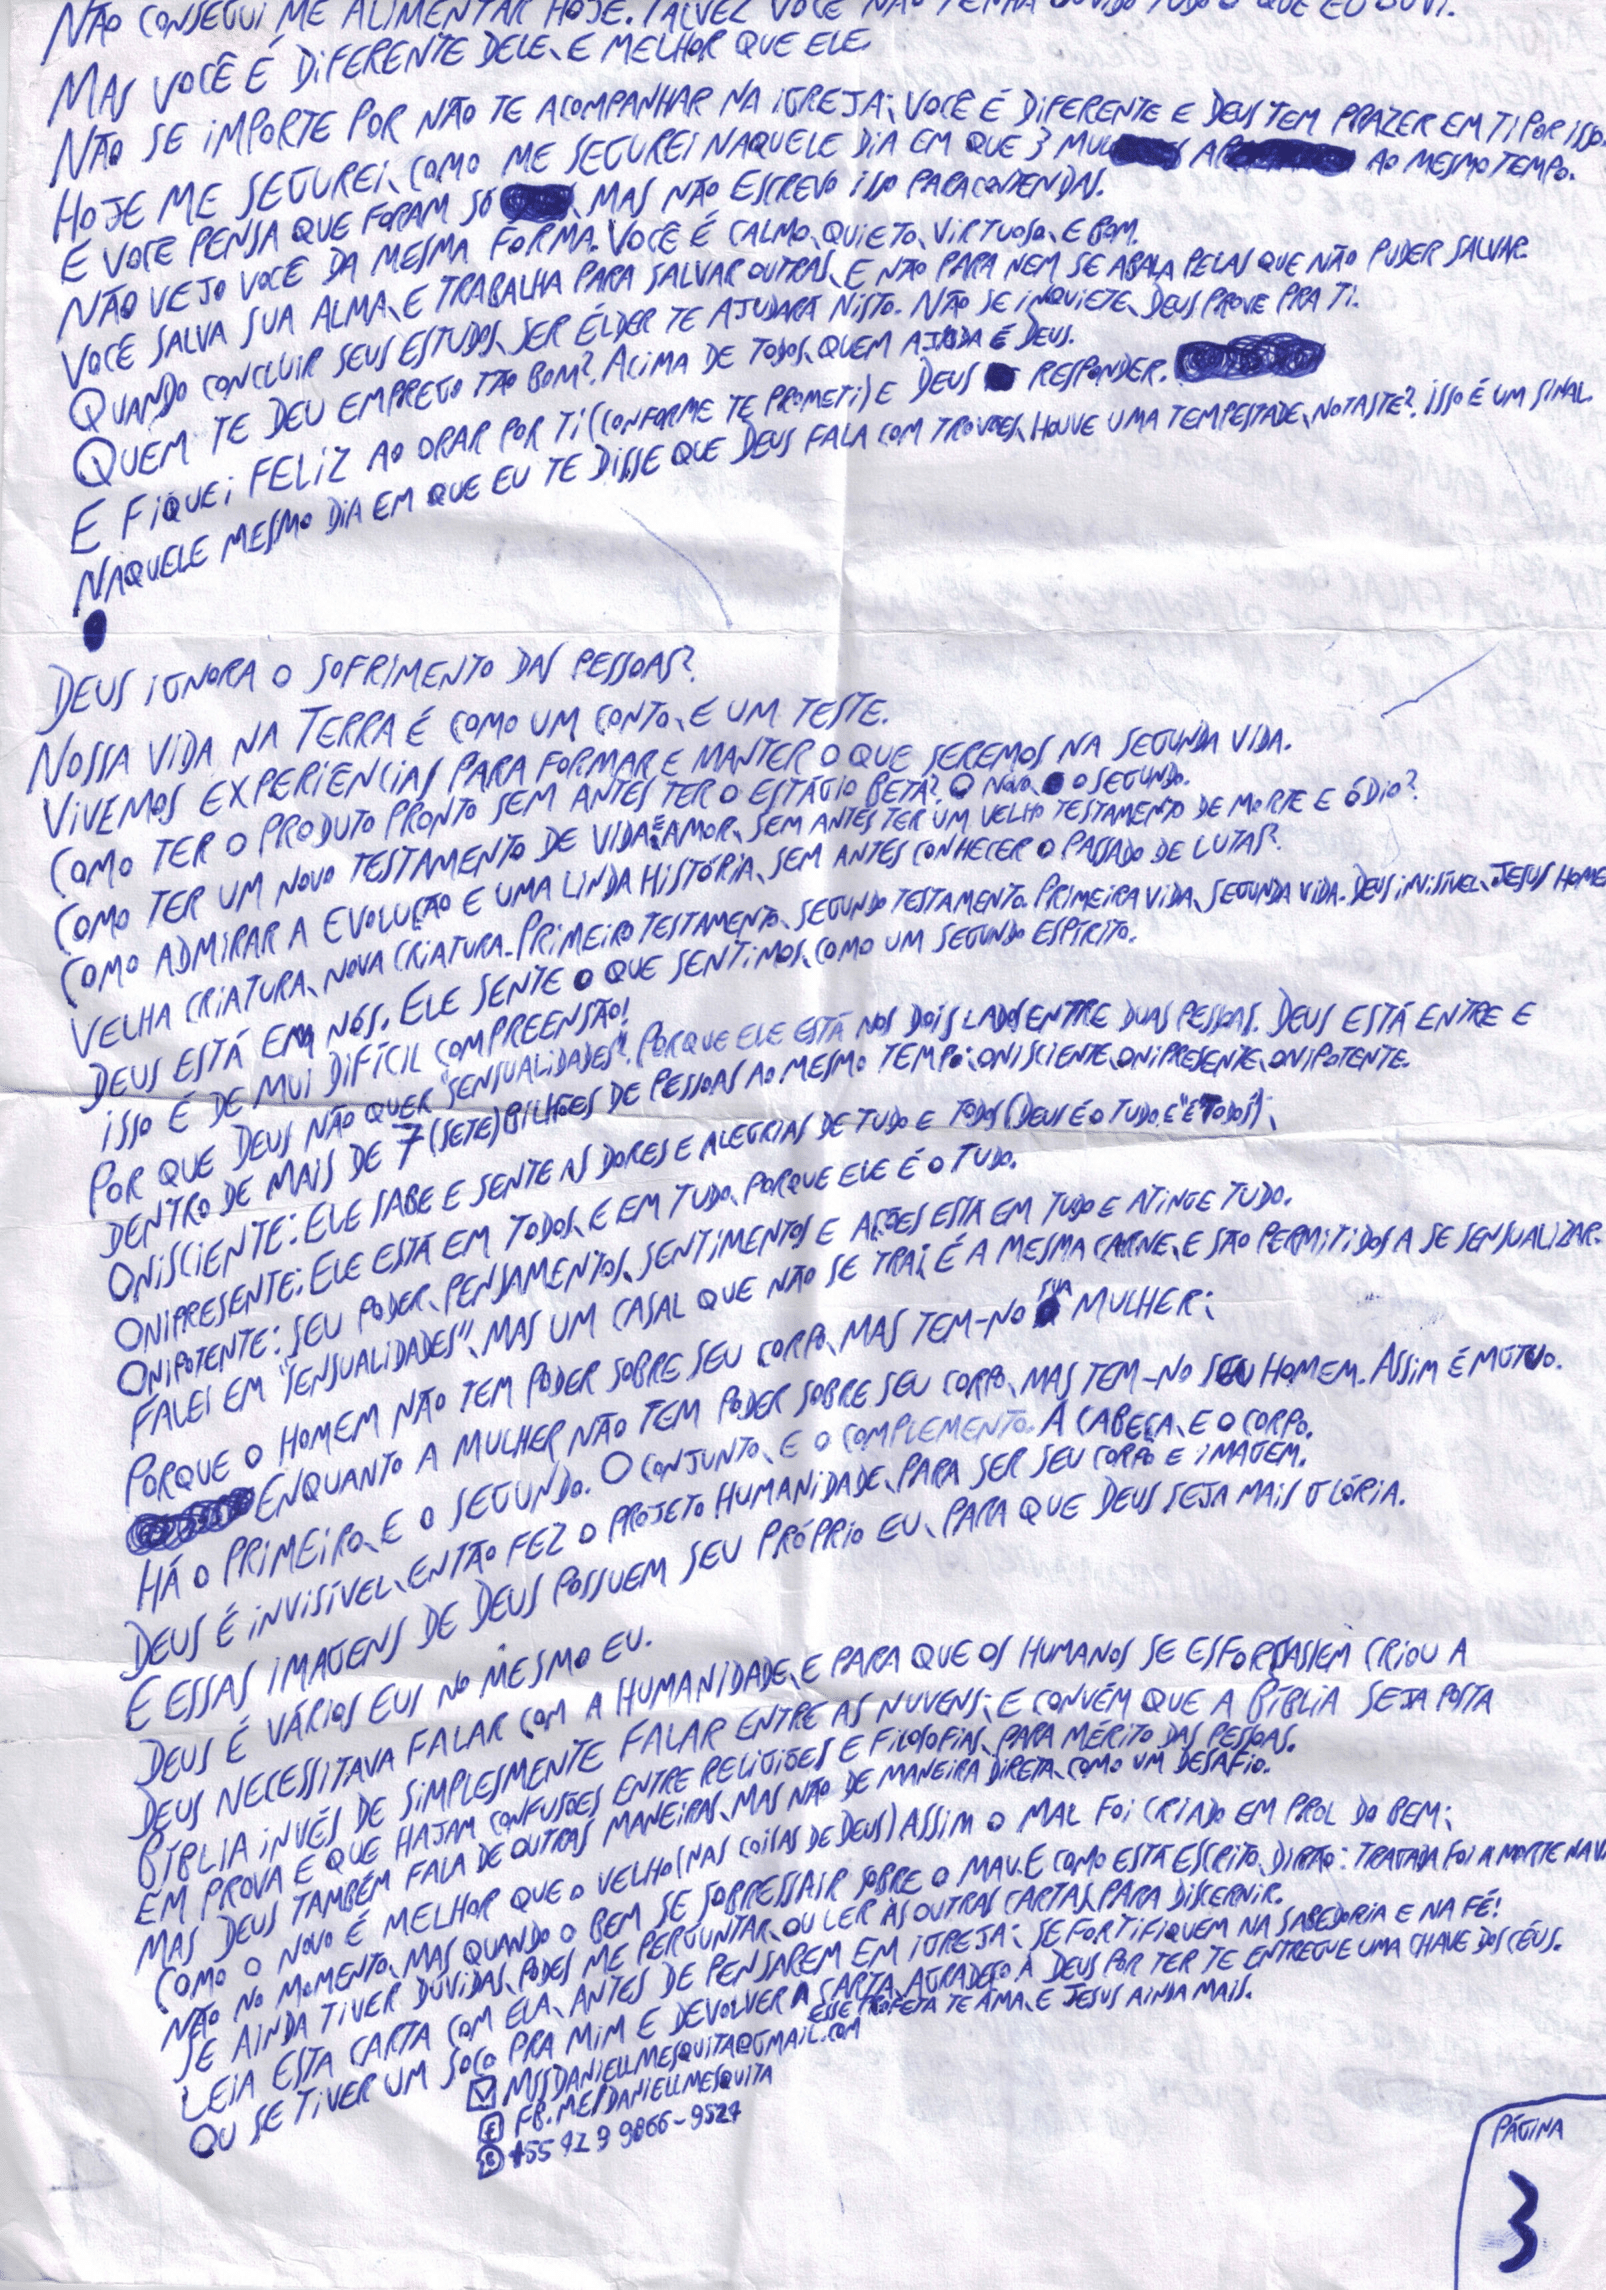 NÃO CONSEGUI ME ALIMENTAR HOJE. TALVEZ VOCÊ NÃO TENHA OUVIDO TUDO O QUE EU OUVI.
MAS VOCÊ É DIFERENTE DELE, E MELHOR QUE ELE.
NÃO SE IMPORTE POR NÃO TE ACOMPANHAR NA IGREJA; VOCÊ É DIFERENTE E DEUS TEM PRAZER EM TI POR ISSO.
HOJE ME SEGUREI, COMO ME SEGUREI NAQUELE DIA EM QUE 3 MUL S AP AO MESMO TEMPO.
E VOCE PENSA QUE FORAM SÓ , MAS NÃO ESCREVO ISSO PARA CONTENDAS.
NÃO VEJO VOCÊ DA MESMA FORMA. VOCÊ É CALMO, QUIETO, VIRTUOSO, E BOM.
VOCÊ SALVA SUA ALMA, E TRABALHA PARA SALVAR OUTRAS, E NÃO PARA NEM SE ABALA PELAS QUE NÃO PUDER SALVAR.
QUANDO CONCLUIR SEUS ESTUDOS, SER ÉLDER TE AJUDARÁ NISTO. NÃO SE INQUIETE, DEUS PROVE PRA TI.
QUEM TE DEU EMPREGO TÃO BOM?. ACIMA DE TODOS, QUEM AJUDA É DEUS.
E FIQUEI FELIZ AO ORAR POR TI (CONFORME TE PROMETI) E DEUS RESPONDER.
NAQUELE MESMO DIA EM QUE EU TE DISSE QUE DEUS FALA COM TROVÕES, HOUVE UMA TEMPESTADE, NOTASTE?. ISSO É UM SINAL.
DEUS IGNORA O SOFRIMENTO DAS PESSOAS?
NOSSA VIDA NA TERRA É COMO UM CONTO, E UM TESTE.
VIVEMOS EXPERIÊNCIAS PARA FORMAR E MANTER O QUE SEREMOS NA SEGUNDA VIDA.
COMO TER O PRODUTO PRONTO SEM ANTES TER O ESTÁGIO BETA? O NOVO O SEGUNDO.
COMO TER UM NOVO TESTAMENTO DE VIDA E AMOR, SEM ANTES TER UM VELHO TESTAMENTO DE MORTE E ÓDIO?
COMO ADMIRAR A EVOLUÇÃO E UMA LINDA HISTÓRIA, SEM ANTES CONHECER O PASSADO DE LUTAS?
VELHA CRIATURA, NOVA CRIATURA. PRIMEIRO TESTAMENTO, SEGUNDO TESTAMENTO. PRIMEIRA VIDA, SEGUNDA VIDA. DEUS INVISÍVEL, JESUS HOME
DEUS ESTÁ EM NÓS. ELE SENTE O QUE SENTIMOS, COMO UM SEGUNDO ESPÍRITO.
ISSO É DE MUI DIFÍCIL COMPREENSÃO!
POR QUE DEUS NÃO QUER "SENSUALIDADES"?. PORQUE ELE ESTÁ NOS DOIS LADOS ENTRE DUAS PESSOAS. DEUS ESTÁ ENTRE E
DENTRO DE MAIS DE 7 (SETE) BILHÕES DE PESSOAS AO MESMO TEMPO: ONISCIENTE, ONIPRESENTE, ONIPOTENTE.
ONISCIENTE: ELE SABE E SENTE AS DORES E ALEGRIAS DE TUDO E TODOS (DEUS É O TUDO, E "É TODOS");
ONIPRESENTE: ELE ESTÁ EM TODOS, E EM TUDO, PORQUE ELE É O TUDO.
ONIPOTENTE: SEU PODER, PENSAMENTOS, SENTIMENTOS E AÇÕES ESTÁ EM TUDO E ATINGE TUDO.
FALEI EM "SENSUALIDADES", MAS UM CASAL QUE NÃO SE TRAI, É A MESMA CARNE, E SÃO PERMITIDOS A SE SENSUALIZAR.
PORQUE O HOMEM NÃO TEM PODER SOBRE SEU CORPO, MAS TEM-NO SUA MULHER;
ENQUANTO A MULHER NÃO TEM PODER SOBRE SEU CORPO, MAS TEM-NO SEU HOMEM. ASSIM É MÚTUO.
HÁ O PRIMEIRO, E O SEGUNDO. O CONJUNTO, E O COMPLEMENTO. A CABEÇA, E O CORPO.
DEUS É INVISÍVEL, ENTÃO FEZ O PROJETO HUMANIDADE, PARA SER SEU CORPO E IMAGEM.
E ESSAS IMAGENS DE DEUS POSSUEM SEU PRÓPRIO EU, PARA QUE DEUS SEJA MAIS GLÓRIA.
DEUS É VÁRIOS EUS NO MESMO EU.
DEUS NECESSITAVA FALAR COM A HUMANIDADE, E PARA QUE OS HUMANOS SE ESFORÇASSEM CRIOU A
BÍBLIA INVÉS DE SIMPLESMENTE FALAR ENTRE AS NUVENS; E CONVÉM QUE A BÍBLIA SEJA POSTA
EM PROVA E QUE HAJAM CONFUSÕES ENTRE RELIGIÕES E FILOSOFIAS, PARA MÉRITO DAS PESSOAS.
MAS DEUS TAMBÉM FALA DE OUTRAS MANEIRAS, MAS NÃO DE MANEIRA DIRETA, COMO UM DESAFIO.
COMO O NOVO É MELHOR QUE O VELHO (NAS COISAS DE DEUS) ASSIM O MAL FOI CRIADO EM PROL DO BEM;
NÃO NO MOMENTO, MAS QUANDO O BEM SE SOBRESSAIR SOBRE O MAU. E COMO ESTÁ ESCRITO, DIRÃO: TRAGADA FOI A MORTE NA
SE AINDA TIVER DÚVIDAS, PODES ME PERGUNTAR, OU LER ÀS OUTRAS CARTAS, PARA DISCERNIR.
LEIA ESTA CARTA COM ELA, ANTES DE PENSAREM EM IGREJA; SE FORTIFIQUEM NA SABEDORIA E NA FÉ!
OU SE TIVER UM SOCO PRA MIM E DEVOLVER A CARTA, AGRADEÇO A DEUS POR TER TE ENTREGUE UMA CHAVE DOS CÉUS.
ESSE PROFETA TE AMA, E JESUS AINDA MAIS.
MSSDANIELLMESQUITA@GMAIL.COM
FB.ME/DANIELLMESQUITA
+55 92 9 9866-9527
PÁGINA
3